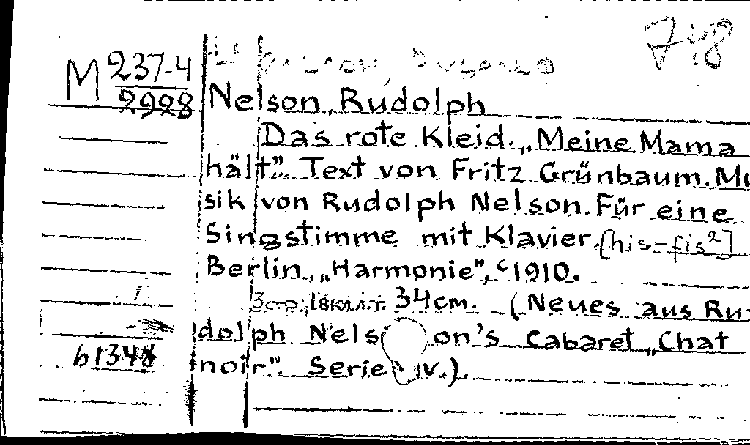 718
M 237-4
2928
Nelson, Rudolph
Das rote Kleid. „Meine Mama
hält". Text von Fritz Grünbaum. Mu
sik von Rudolph Nelson. Für eine
Singstimme mit Klavier. [his-fis²]
Berlin, „Harmonie", c1910.
34cm. (Neues aus Ru
dolph Nelson's Cabaret „Chat
noir". Serie IV.)
61348